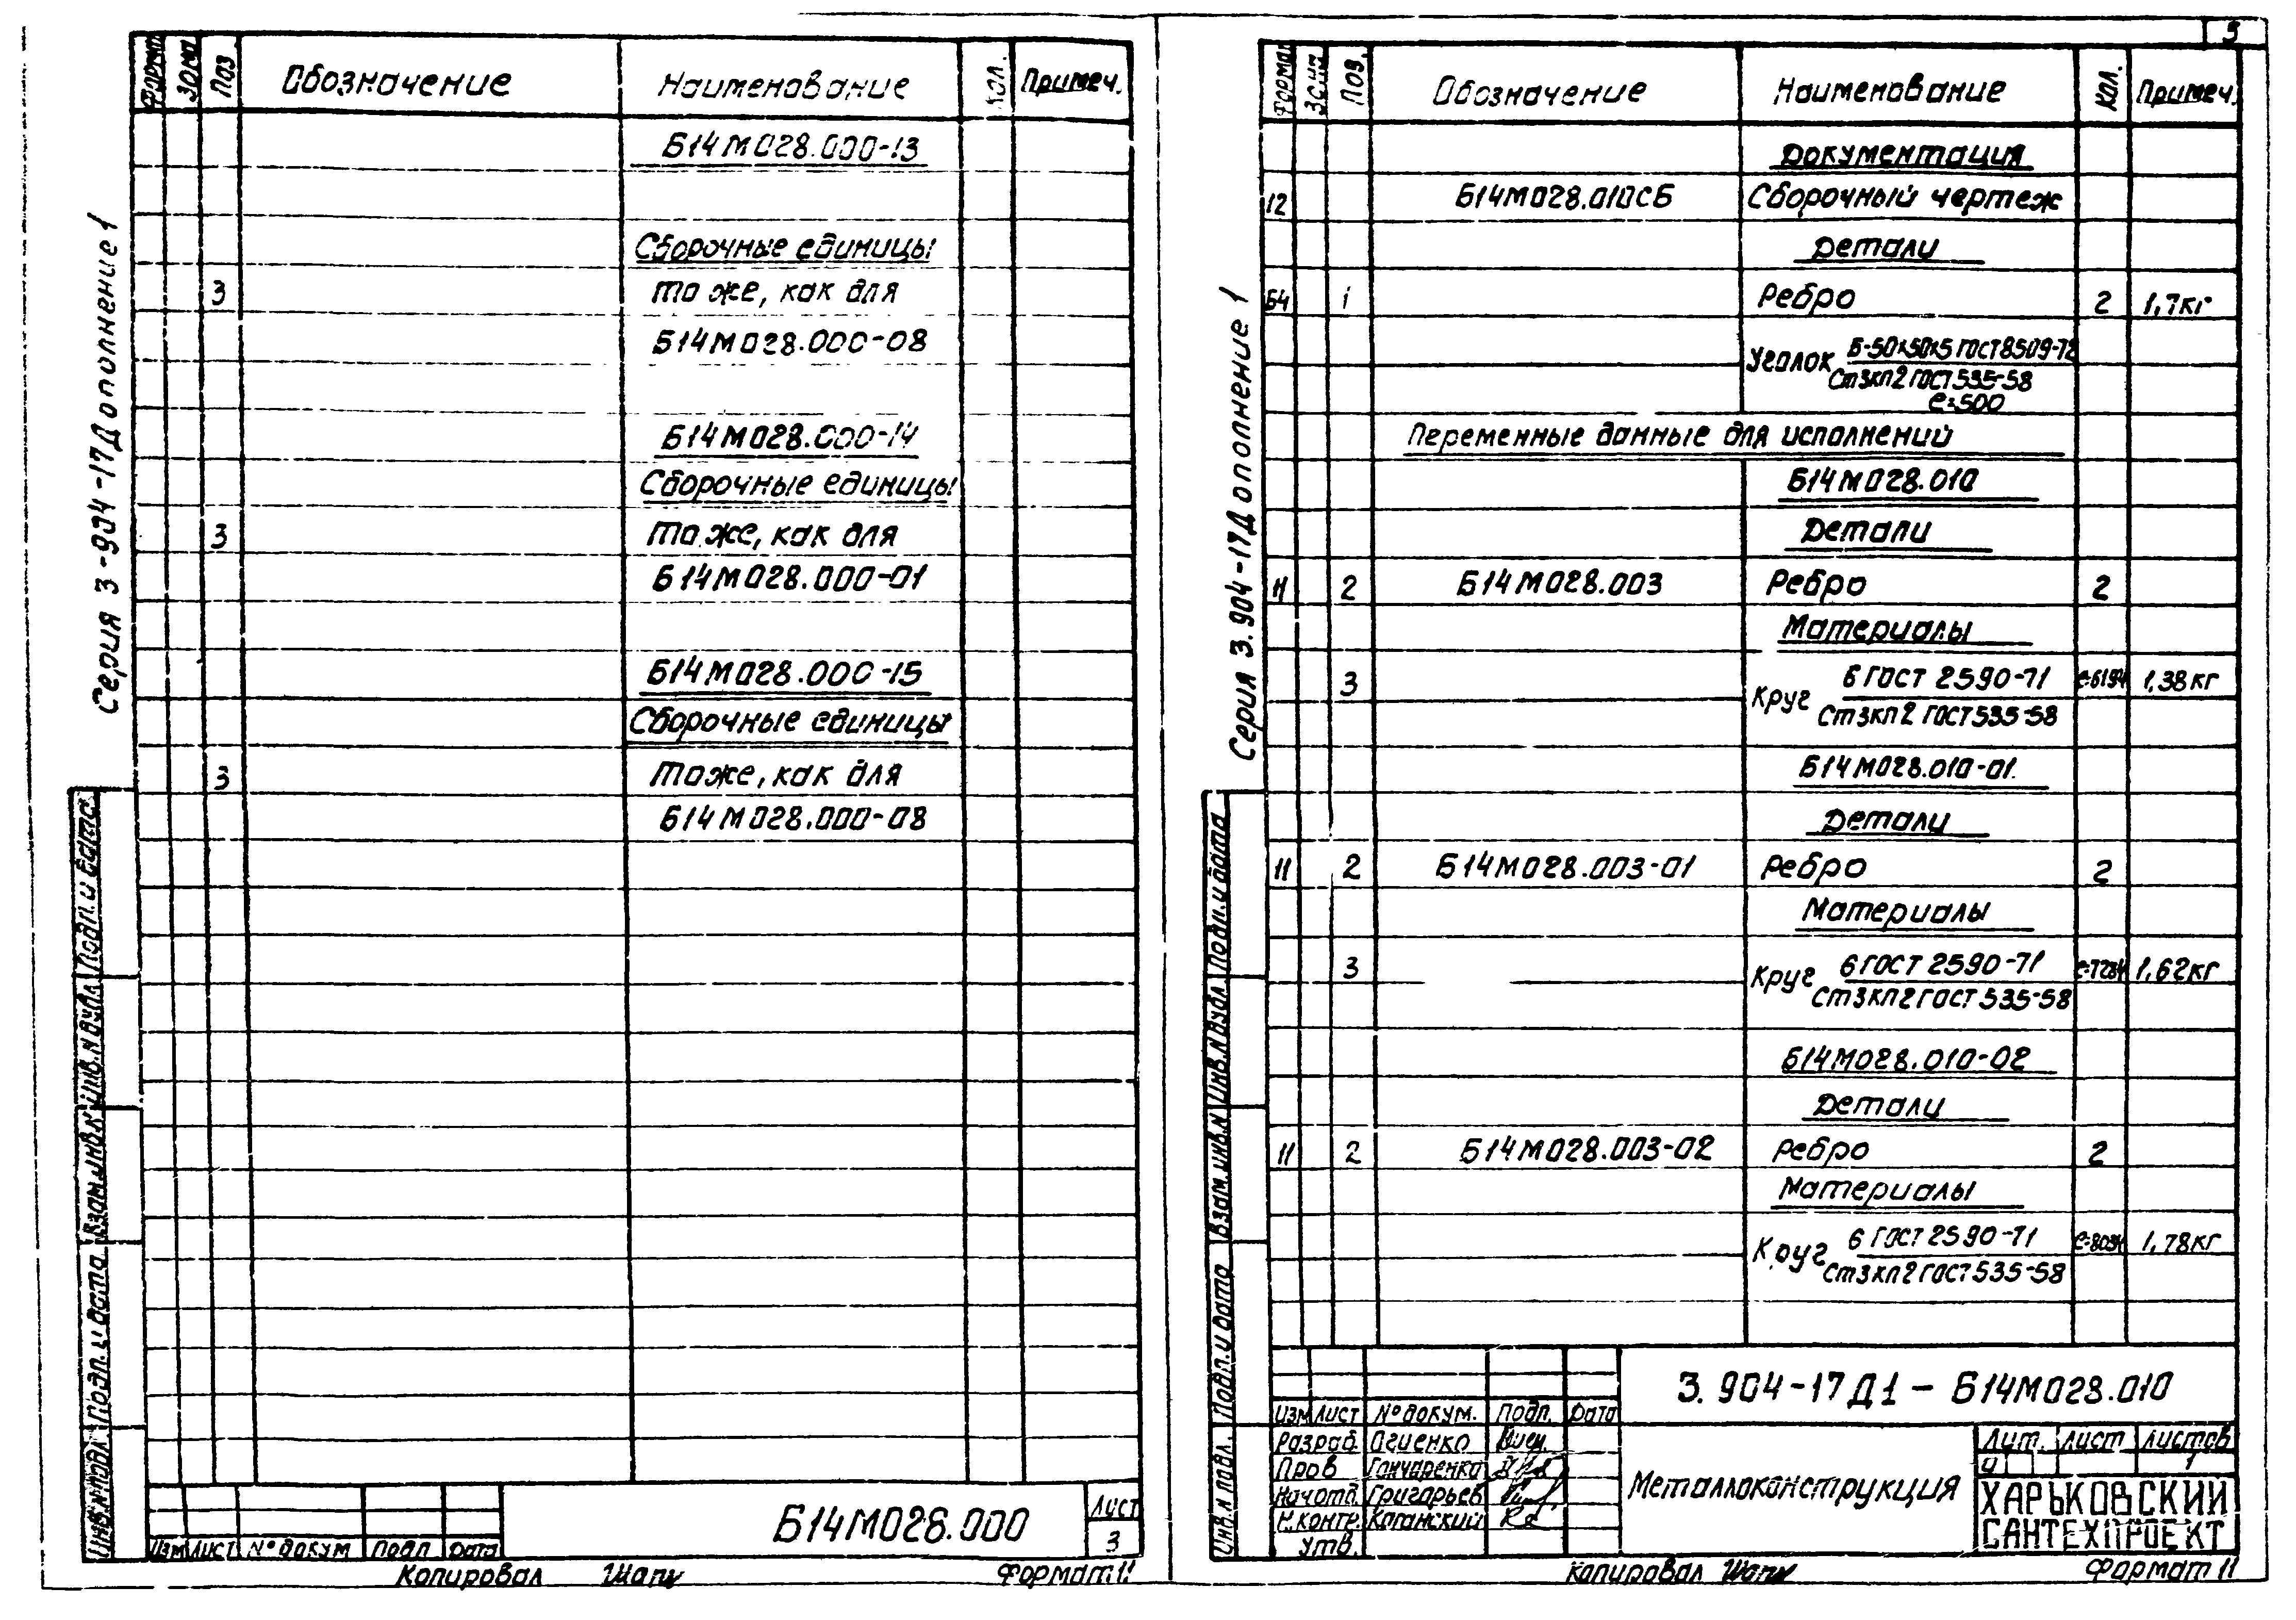 Серия 3-904-17Дополнение 1
Формат Зона Поз Обозначение Наименование Кол. Примеч.
Б14М028.000-13
Сборочные единицы
3 то же, как для
Б14М028.000-08
Б14М028.000-14
Сборочные единицы
3 то же, как для
Б14М028.000-01
Б14М028.000-15
Сборочные единицы
3 то же, как для
Б14М028.000-08
Инв.№подл. Подп. и дата Взам.инв.№ Инв.№дубл. Подп. и дата
Изм Лист № докум Подп Дата
Б14М028.000
Лист
3
Копировал
Формат 11
5
Серия 3.904-17Дополнение 1
Формат Зона Поз. Обозначение Наименование Кол. Примеч.
Документация
12 Б14М028.010СБ Сборочный чертеж
Детали
Б4 1 Ребро 2 1,7кг
Уголок Б-50х50х5 ГОСТ 8509-72
Ст3кп2 ГОСТ 535-58
ℓ=500
Переменные данные для исполнений
Б14М028.010
Детали
11 2 Б14М028.003 Ребро 2
Материалы
3 Круг 6 ГОСТ 2590-71 ℓ=6194 1,38кг
Ст3кп2 ГОСТ 535-58
Б14М028.010-01.
Детали
11 2 Б14М028.003-01 Ребро 2
Материалы
3 Круг 6 ГОСТ 2590-71 1,62кг
Ст3кп2 ГОСТ 535-58
Б14М028.010-02
Детали
11 2 Б14М028.003-02 Ребро 2
Материалы
Круг 6 ГОСТ 2590-71 1,78кг
Ст3кп2 ГОСТ 535-58
Инв.№ подл. Подп. и дата Взам.инв.№ Инв.№дубл. Подп. и дата
3.904-17Д1-Б14М028.010
Изм Лист № докум. Подп. Дата
Разраб. Огиенко
Пров Гончаренко
Нач отд. Григорьев
Н.контр. Каганский
Утв.
Металлоконструкция
Лит. Лист Листов
И 1
ХАРЬКОВСКИЙ
САНТЕХПРОЕКТ
Копировал
Формат 11